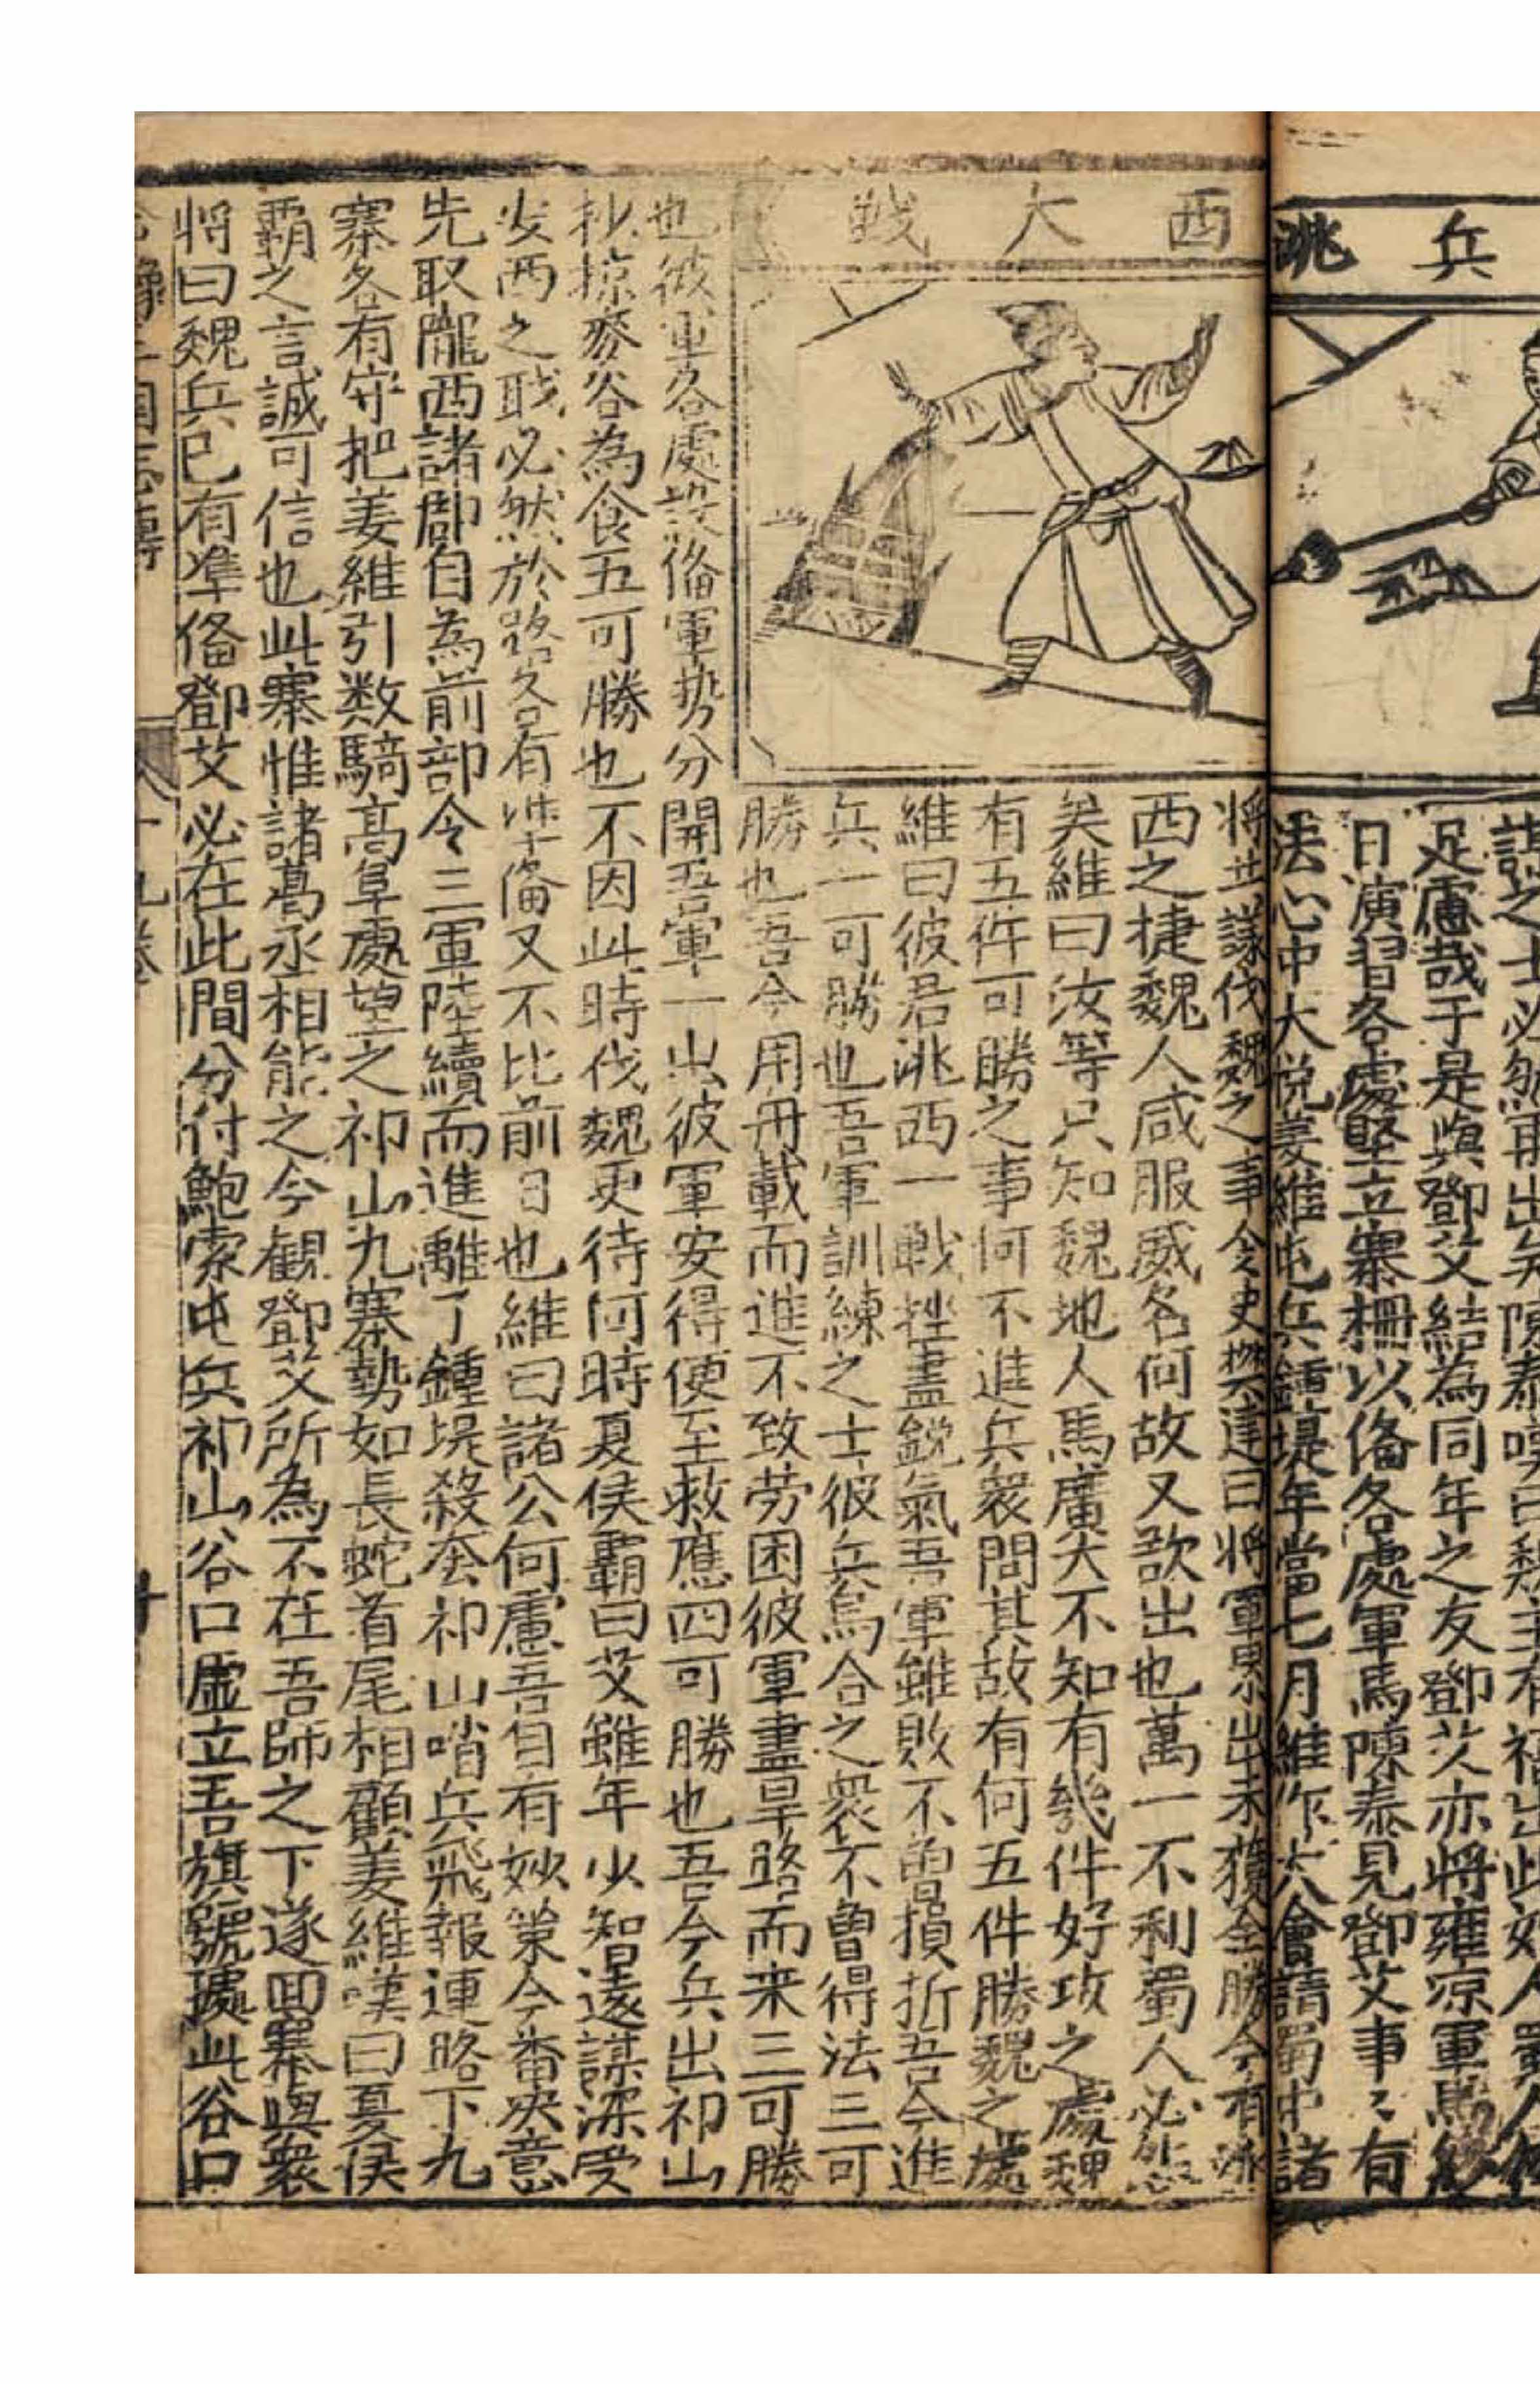 兵洮
謀之士必然再出矣陳泰
足慮哉于是與鄧艾結為同年之友鄧艾亦將雍凉軍馬
日演習各處堅立寨柵以俻各處軍馬陳泰見鄧艾事〻有
法心中大悅姜維屯兵鍾堤年當七月維作大會請蜀中諸
西大戰
將共議伐魏之事令史樊建曰將軍累出未獲全勝今有洮
西之捷魏人咸服威名何故又欲出也萬一不利蜀人必怨
矣維曰汝等只知魏地人馬廣大不知有幾件好攻之處魏
有五件可勝之事何不進兵衆問其故有何五件勝魏之處
維曰彼君洮西一戰挫盡銳氣吾軍雖敗不曾損折吾今進
兵一可勝也吾軍訓練之士彼兵烏合之衆不曾得法三可
勝也吾今用舟載而進不致劳困彼軍盡旱路而来三可勝
也彼軍各處設俻軍势分開吾軍一出彼軍安得便至救應四可勝也吾今兵出祁山
抄掠麥谷為食五可勝也不因此時伐魏更待何時夏侯霸曰艾雖年少智遠謀深受
安西之戝必然於路各有准俻又不比前日也維曰諸公何慮吾自有妙策今番决意
先取隴西諸郡自為前部令三軍陸續而進離了鍾堤殺奔祁山哨兵飛報連路下九
寨各有守把姜維引数騎高阜處望之祁山九寨勢如長蛇首尾相顧姜維嘆曰夏侯
霸之言誠可信也此寨惟諸葛丞相能之今觀鄧艾所為不在吾師之下遂回寨與衆
將曰魏兵已有准俻鄧艾必在此間分付鮑索屯兵祁山谷口虛立吾旗號㨿此谷口
三国志傳 十九卷